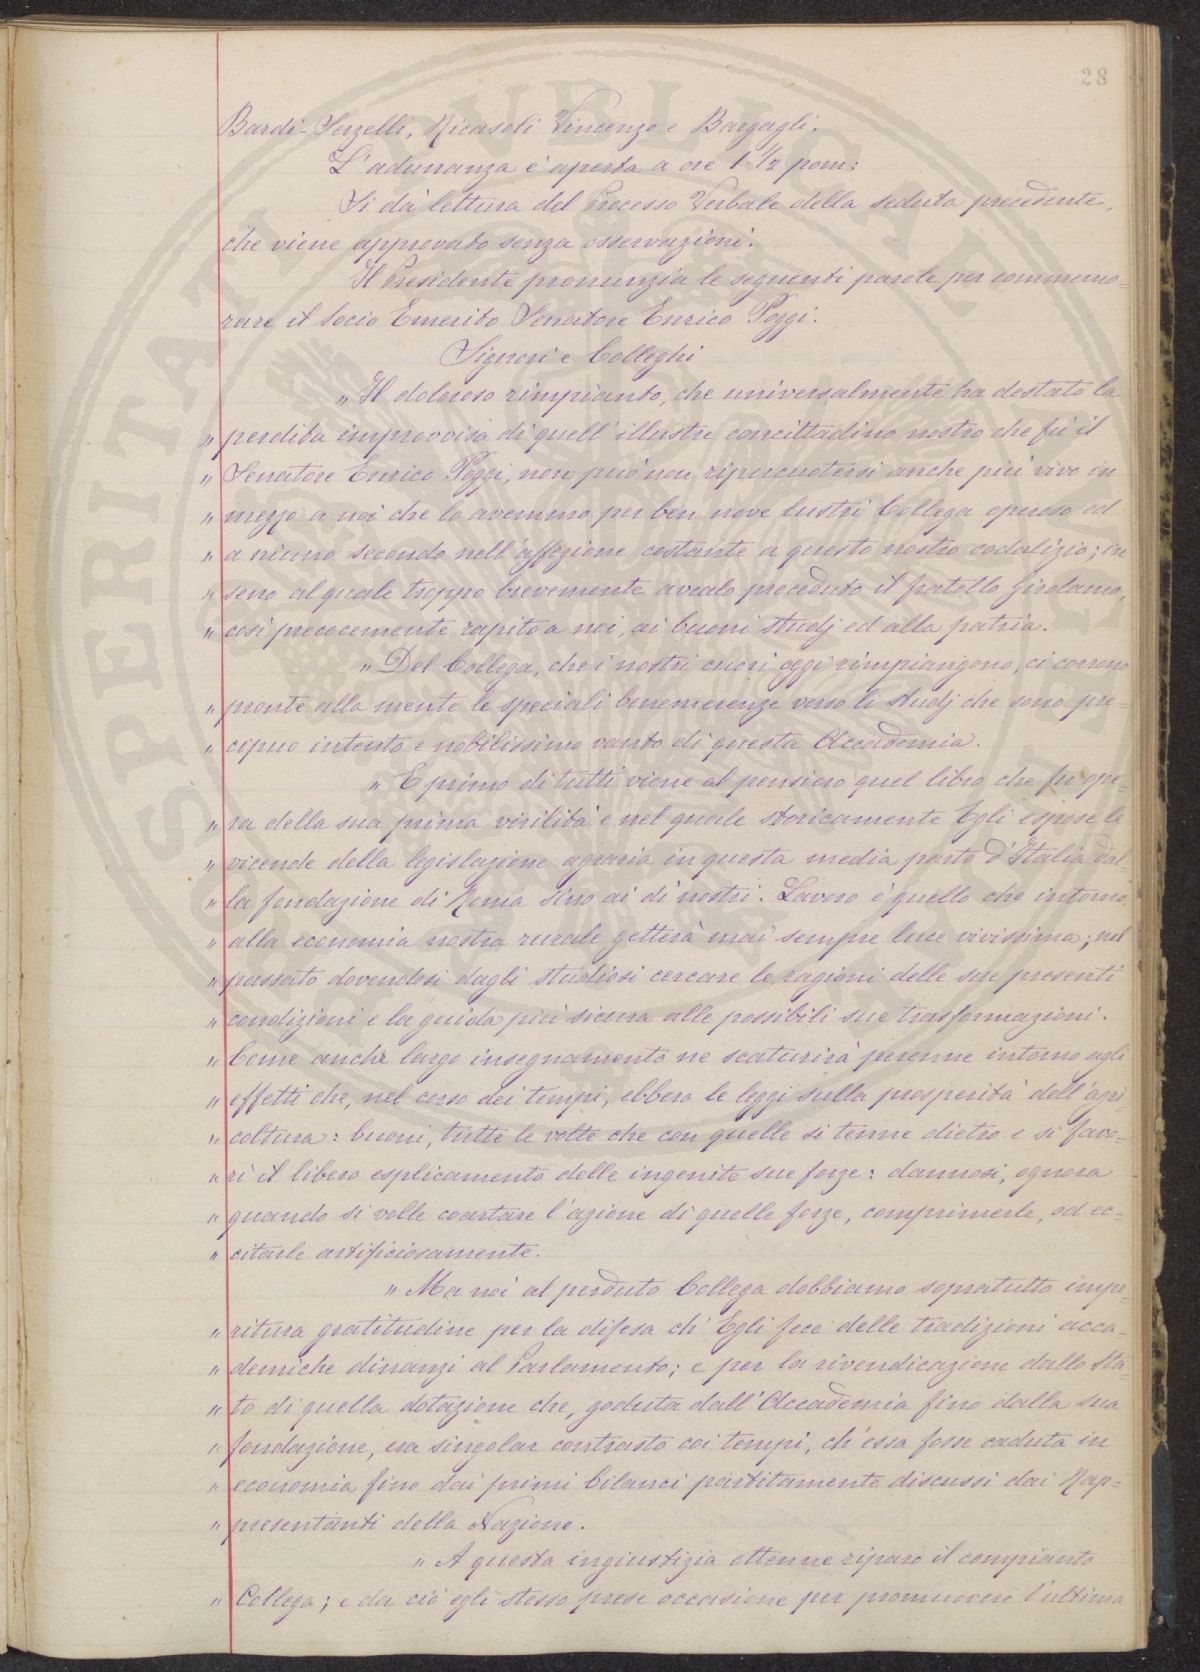 28
Bardi-Serzelli, Ricasoli Vincenzo e Bargagli.
L'adunanza è aperta a ore 1 1/2 pom:
Si dà lettura del Processo Verbale della seduta precedente,
che viene approvato senza osservazioni.
Il Presidente pronunzia le seguenti parole per commemo=
rare il Socio Emerito Senatore Enrico Poggi.
Signori e Colleghi
„ Il doloroso rimpianto, che universalmente ha destato la
„ perdita improvvisa di quell'illustre concittadino nostro che fù il
„ Senatore Enrico Poggi, non può non ripercuotersi anche più vivo in
„ mezzo a noi che lo avemmo per ben nove lustri Collega operoso ed
„ a niuno secondo nell'affezione costante a questo nostro sodalizio; in
„ seno al quale troppo brevemente avealo preceduto il fratello Girolamo,
„ così precocemente rapito a noi, ai buoni studj ed alla patria.
„ Del Collega, che i nostri cuori oggi rimpiangono, ci corrono
„ pronte alla mente le speciali benemerenze verso li studj che sono pre=
„ cipuo intento e nobilissimo vanto di questa Accademia.
„ E primo di tutti viene al pensiero quel libro che fu ope=
„ ra della sua prima virilità e nel quale storicamente Egli espose le
„ vicende della legislazione agraria in questa media parte d'Italia dal=
„ la fondazione di Roma sino ai dì nostri. Lavoro è quello che intorno
„ alla economia nostra rurale getterà mai sempre luce vivissima; nel
„ passato dovendosi dagli studiosi cercare le ragioni delle sue presenti
„ condizioni e la guida più sicura alle possibili sue trasformazioni.
„ Come anche largo insegnamento ne scaturirà perenne intorno agli
„ effetti che, nel corso dei tempi, ebbero le leggi sulla prosperità dell'agri=
„ coltura: buoni, tutte le volte che con quelle si tenne dietro e si favo=
„ rì il libero esplicamento delle ingenite sue forze: dannosi, ognora
„ quando si volle coartare l'azione di quelle forze, comprimerle, od ec=
„ citarle artificiosamente.
„ Ma noi al perduto Collega dobbiamo sopratutto impe=
„ ritura gratitudine per la difesa ch'Egli fece delle tradizioni acca=
„ demiche dinanzi al Parlamento; e per la rivendicazione dallo Sta=
„ to di quella dotazione che, goduta dall'Accademia fino dalla sua
„ fondazione, era singolar contrasto coi tempi, ch'essa fosse caduta in
„ economia fino dai primi bilanci partitamente discussi dai Rap=
„ presentanti della Nazione.
„ A questa ingiustizia ottenne riparo il compianto
„ Collega; e da ciò egli stesso prese occasione per promuovere l'ultima